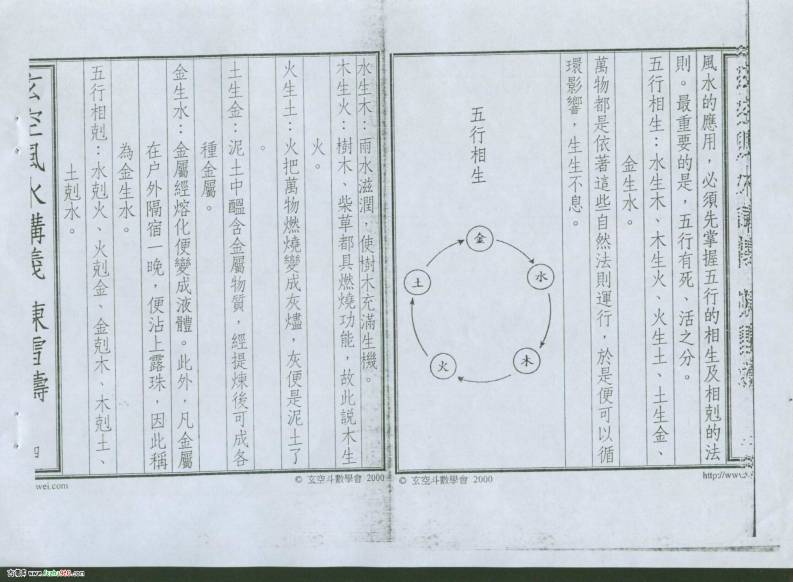 風水的應用，必須先掌握五行的相生及相剋的法
則。最重要的是，五行有死、活之分。
五行相生：水生木、木生火、火生土、土生金、
金生水。
萬物都是依著這些自然法則運行，於是便可以循
環影響，生生不息。
五行相生
金
水
木
火
土
http://www
© 玄空斗數學會 2000
水生木：雨水滋潤，使樹木充滿生機。
木生火：樹木、柴草都具燃燒功能，故此說木生
火。
火生土：火把萬物燃燒變成灰燼，灰便是泥土了
。
土生金：泥土中醞含金屬物質，經提煉後可成各
種金屬。
金生水：金屬經熔化便變成液體。此外，凡金屬
在戶外隔宿一晚，便沾上露珠，因此稱
為金生水。
五行相剋：水剋火、火剋金、金剋木、木剋土、
土剋水。
玄空風水講義 陳雪濤
四
© 玄空斗數學會 2000
wei.com